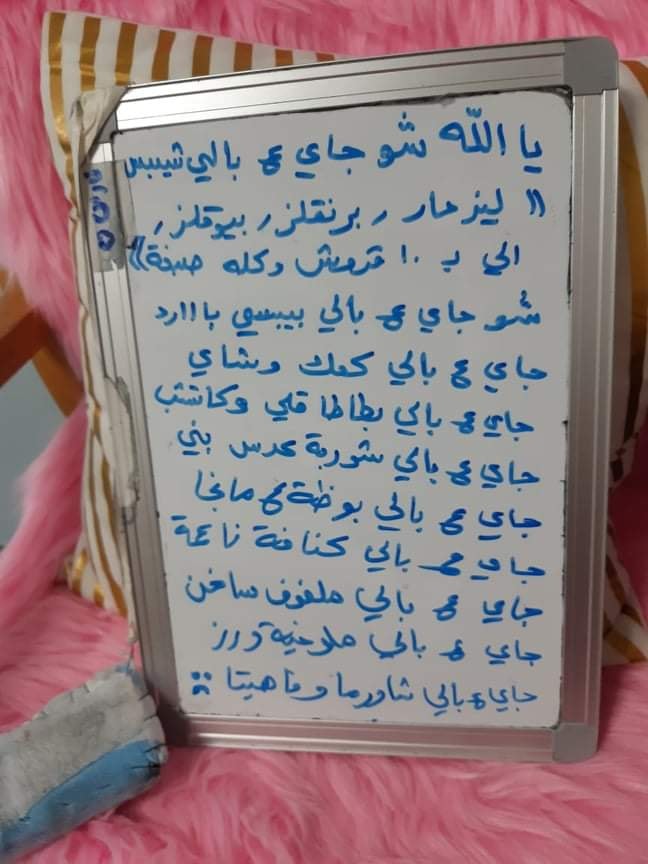 يا الله شو جاي ع بالي شيبس
(( ليز حار ، برنقلز ، بيوقلز ،
الي ب ١٠ قروش وكله صفة ))
شو جاي ع بالي بيبسي بااارد
جاي ع بالي كعك وشاي
جاي ع بالي بطاطا قلي وكاتشب
جاي ع بالي شوربة عدس بني
جاي ع بالي بوظة ع مانجا
جاي ع بالي كنافة ناعمة
جاي ع بالي ملفوف ساخن
جاي ع بالي ملوخية ورز
جاي ع بالي شاورما وفاهيتا :(